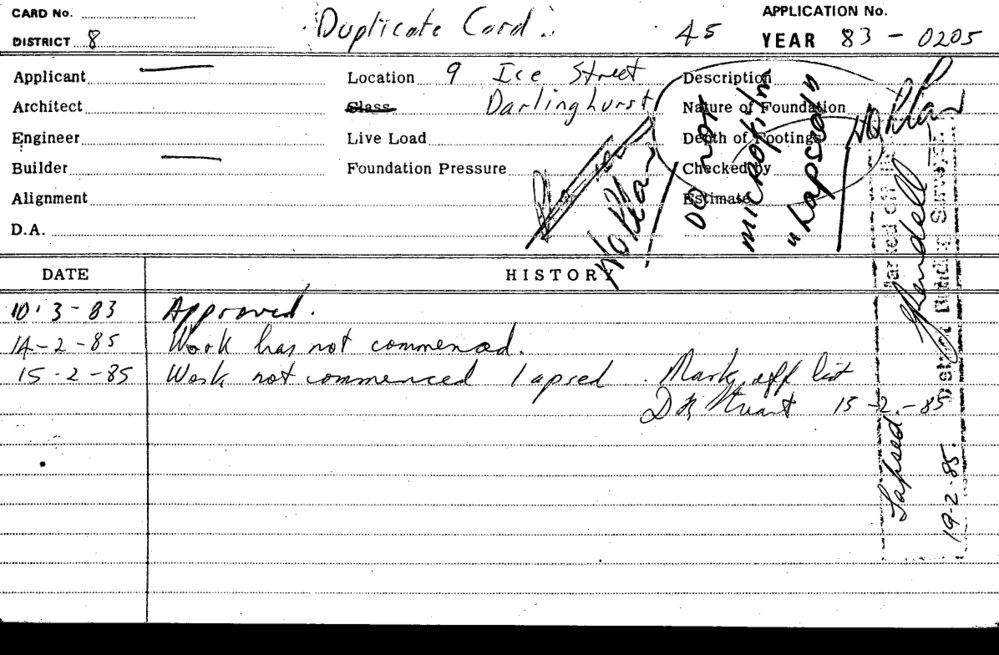 CARD No. Duplicate Card. APPLICATION No.
DISTRICT 8 45 YEAR 83 - 0205
Applicant Location 9 Ice Street Description
Architect Class Darlinghurst Nature of Foundation
Engineer Live Load Depth of Footings
Builder Foundation Pressure Checked by
Alignment Estimate
D.A.
No Plan
DO NOT
microfilm
"Lapsed"
NO Plan
DATE HISTORY
10.3-83 Approved.
14-2-85 Work has not commenced.
15-2-85 Work not commenced lapsed. Mark off list
15-2-85
District Building Surveyor
Lapsed
19-2-85.